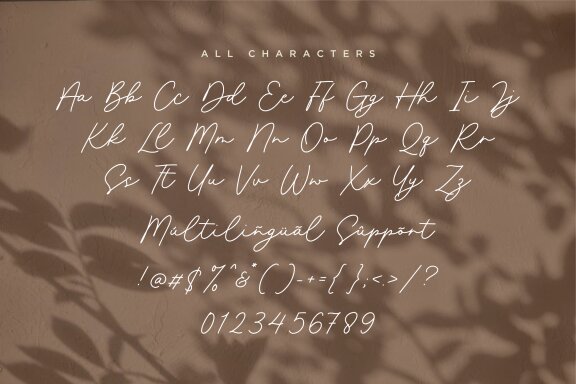 ALL CHARACTERS
Aa Bb Cc Dd Ee Ff Gg Hh Ii Jj
Kk Ll Mm Nn Oo Pp Qq Rr
Ss Tt Uu Vv Ww Xx Yy Zz
Múltiliñgüãl Sûppõrt
!@#$%^&*()-+={};<>/?
0123456789